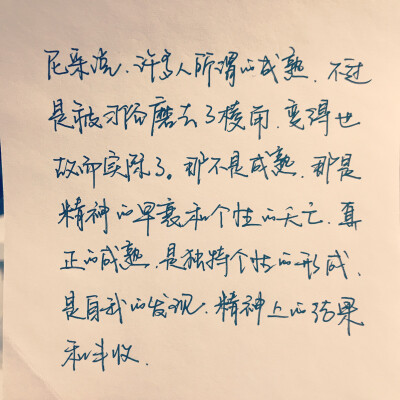 尼采说、许多人所谓的成熟、不过
是被习俗磨去了棱角、变得世
故而实际了。那不是成熟、那是
精神的早衰和个性的夭亡、真
正的成熟、是独特个性的形成、
是自我的发现、精神上的结果
和丰收.